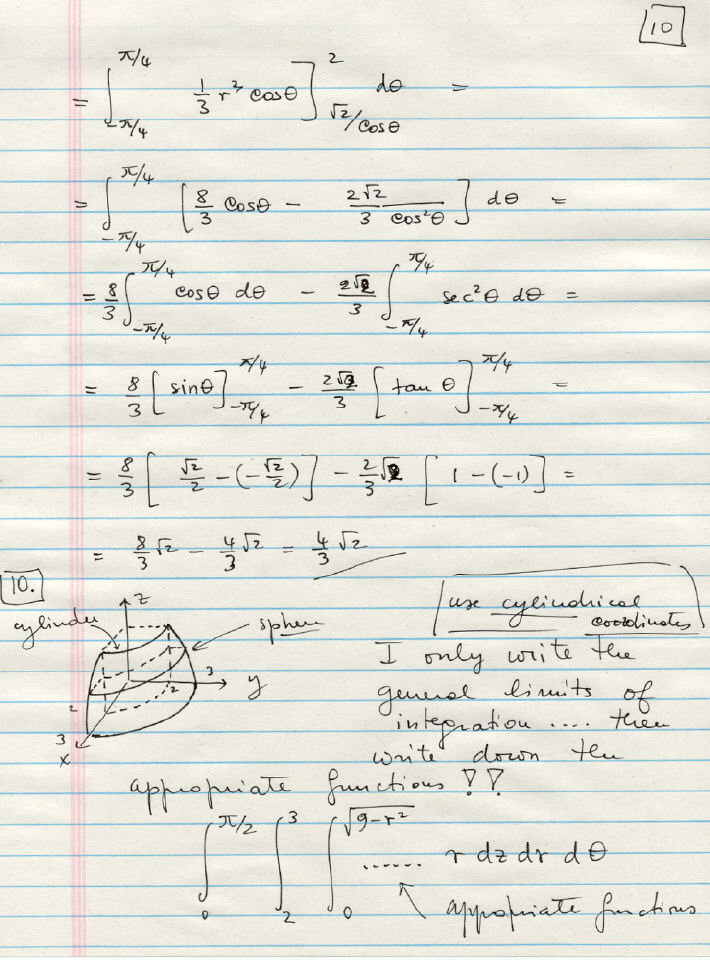 10
= ∫_{-π/4}^{π/4} 1/3 r³ cosθ ]_{√2/cosθ}^{2} dθ =
= ∫_{-π/4}^{π/4} [ 8/3 cosθ - 2√2/3 1/cos²θ ] dθ =
= 8/3 ∫_{-π/4}^{π/4} cosθ dθ - 2√2/3 ∫_{-π/4}^{π/4} sec²θ dθ =
= 8/3 [ sinθ ]_{-π/4}^{π/4} - 2√2/3 [ tan θ ]_{-π/4}^{π/4} =
= 8/3 [ √2/2 - (-√2/2) ] - 2/3 √2 [ 1 - (-1) ] =
= 8/3 √2 - 4/3 √2 = 4/3 √2
10.
cylinder
z
sphere
3
2
y
2
3
x
use cylindrical
coordinates
I only write the
general limits of
integration .... then
write down the
appropriate functions !!
∫_{0}^{π/2} ∫_{2}^{3} ∫_{0}^{√9-r²} ...... r dz dr dθ
appropriate functions